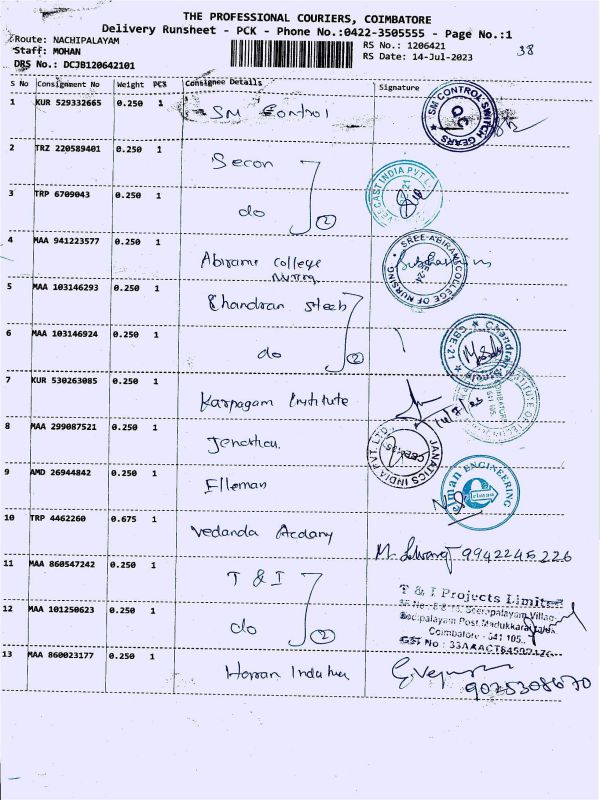 THE PROFESSIONAL COURIERS, COIMBATORE
Delivery Runsheet - PCK - Phone No.:0422-3505555 - Page No.:1
Route: NACHIPALAYAM
RS No.: 1206421
38
Staff: MOHAN
RS Date: 14-Jul-2023
DRS No.: DCJB120642101
S No Consignment No Weight PCS Consignee Details Signature
1 KUR 529332665 0.250 1 SM Control
SM CONTROL SWITCH GEARS
QC
2 TRZ 220589401 0.250 1 Secon
CAST INDIA PVT. L
3 TRP 6709043 0.250 1 do 2
4 MAA 941223577 0.250 1 Abirami College
SREE ABIRAMI COLLEGE OF NURSING
5 MAA 103146293 0.250 1 Chandran Steels
6 MAA 103146924 0.250 1 do 2
Chandran Steels
CBE-21
7 KUR 530263085 0.250 1 Karpagam Institute
14/7/23
8 MAA 299087521 0.250 1
JANATICS INDIA PVT. LTD.
9 AMD 26944842 0.250 1 Elleman
Elman ENGINEERING
10 TRP 4462260 0.675 1 Vedanda Acdamy
9942245226
11 MAA 860547242 0.250 1 T & I
T & I Projects Limited
Seerapalayam Village
Seerapalayam Post, Madukkarai Taluk
Coimbatore - 641 105.
12 MAA 101250623 0.250 1 do 2
GST No :
13 MAA 860023177 0.250 1
9025308670